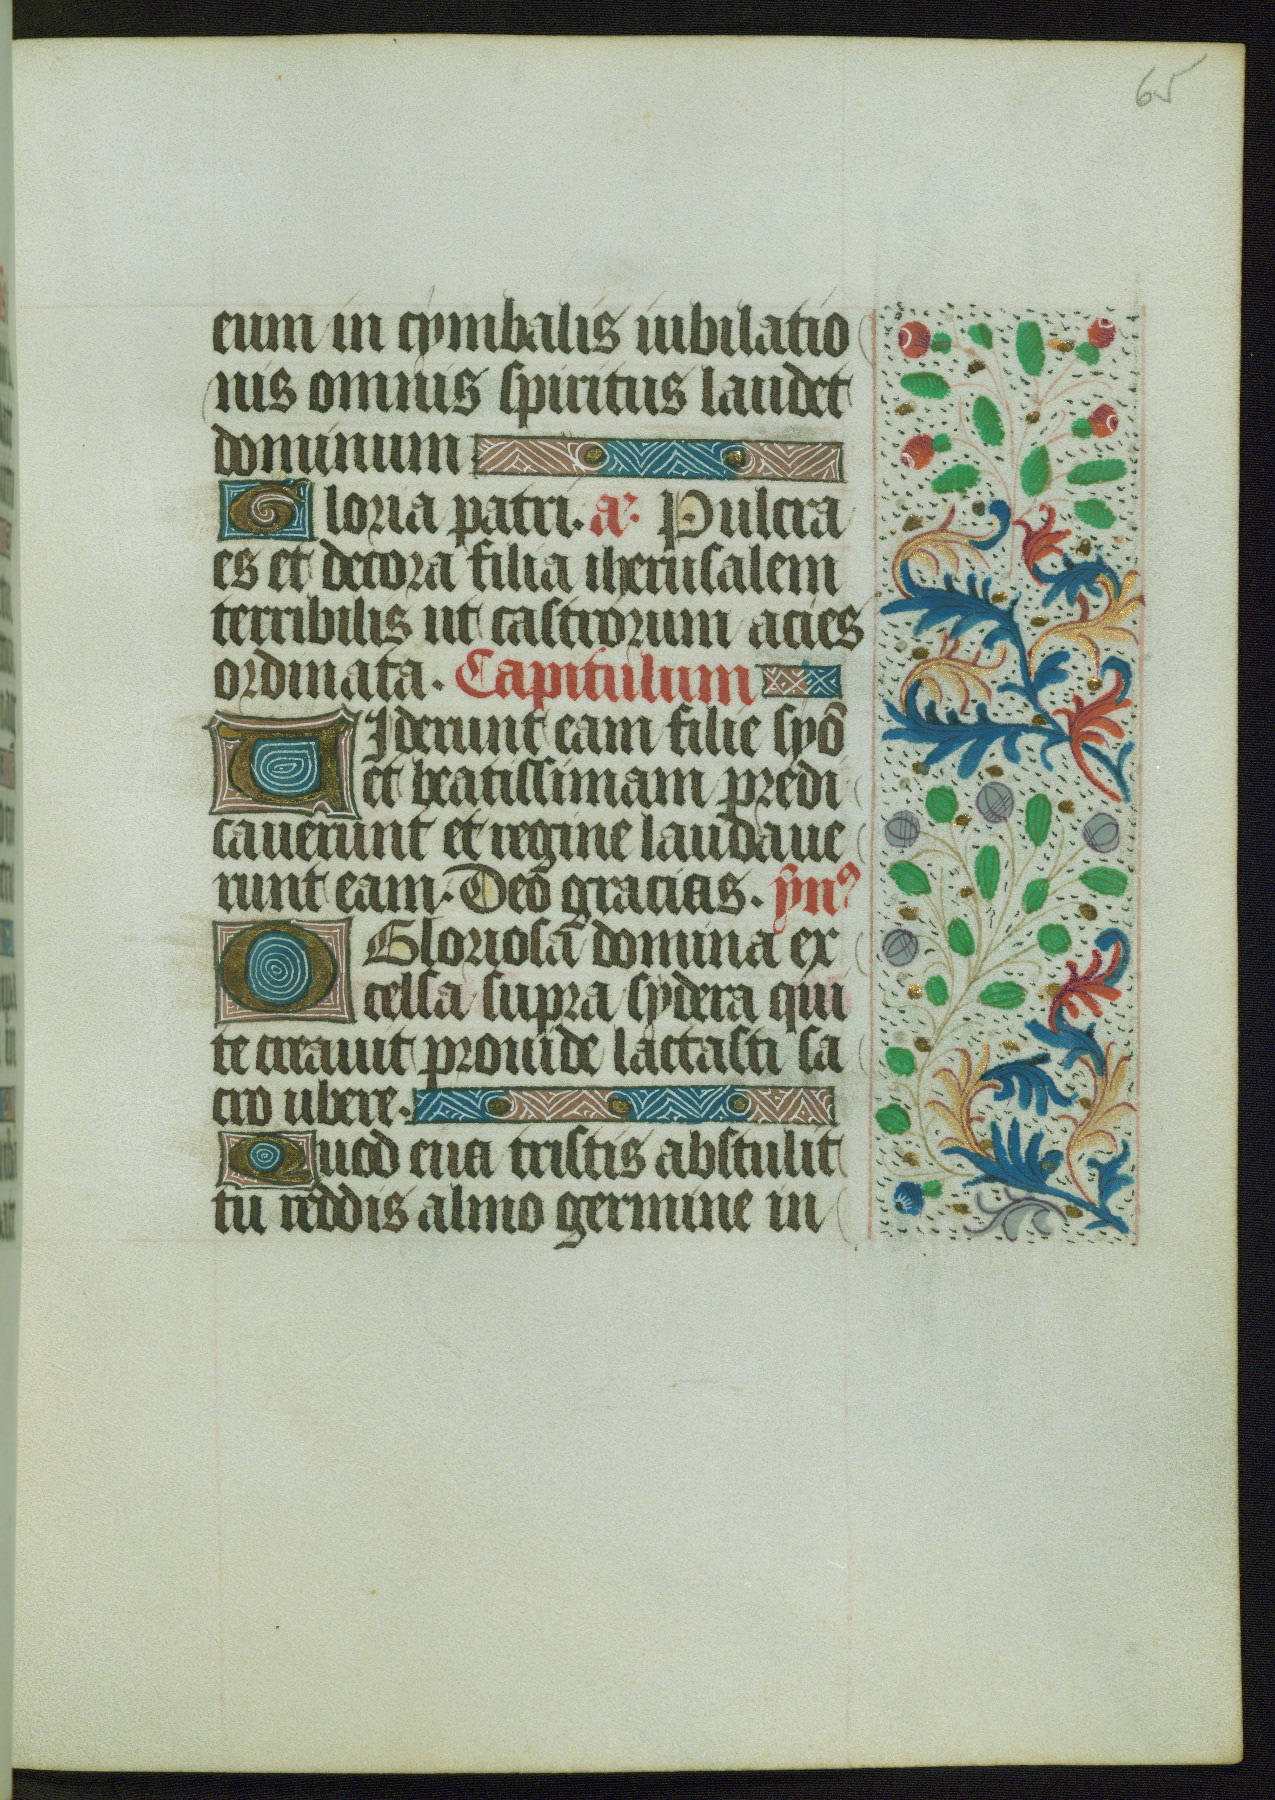 65
eum in cymbalis iubilatio
nis omnis spiritus laudet
dominum
Gloria patri. an̄. Pulcra
es et decora filia iherusalem
terribilis ut castrorum acies
ordinata. Capitulum
Viderunt eam filie syō
et beatissimam predi
cauerunt et regine laudaue
runt eam. Deō gracias. ẏmꝰ
O Gloriosa domina ex
celsa supra sydera qui
te creauit prouide lactasti sa
cro ubere.
Quod eua tristis abstulit
tu reddis almo germine in